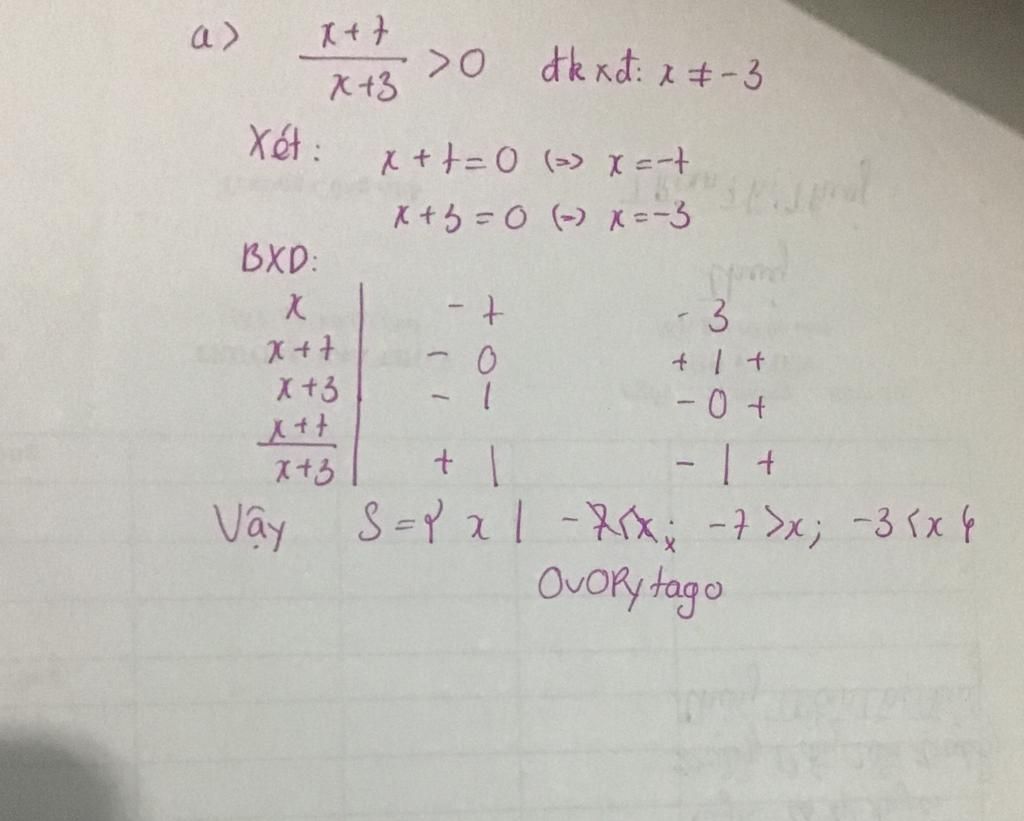 a> x+7/x+3 >0 đkxđ: x ≠ -3
Xét: x + 7 = 0 (=> x = -7
x + 3 = 0 (=> x = -3
BXD:
x | - 7 - 3
x + 7 | - 0 + | +
x + 3 | - | - 0 +
x+7/x+3 | + | - | +
Vậy S = { x | -7 > x; -3 < x }
OvOPytago